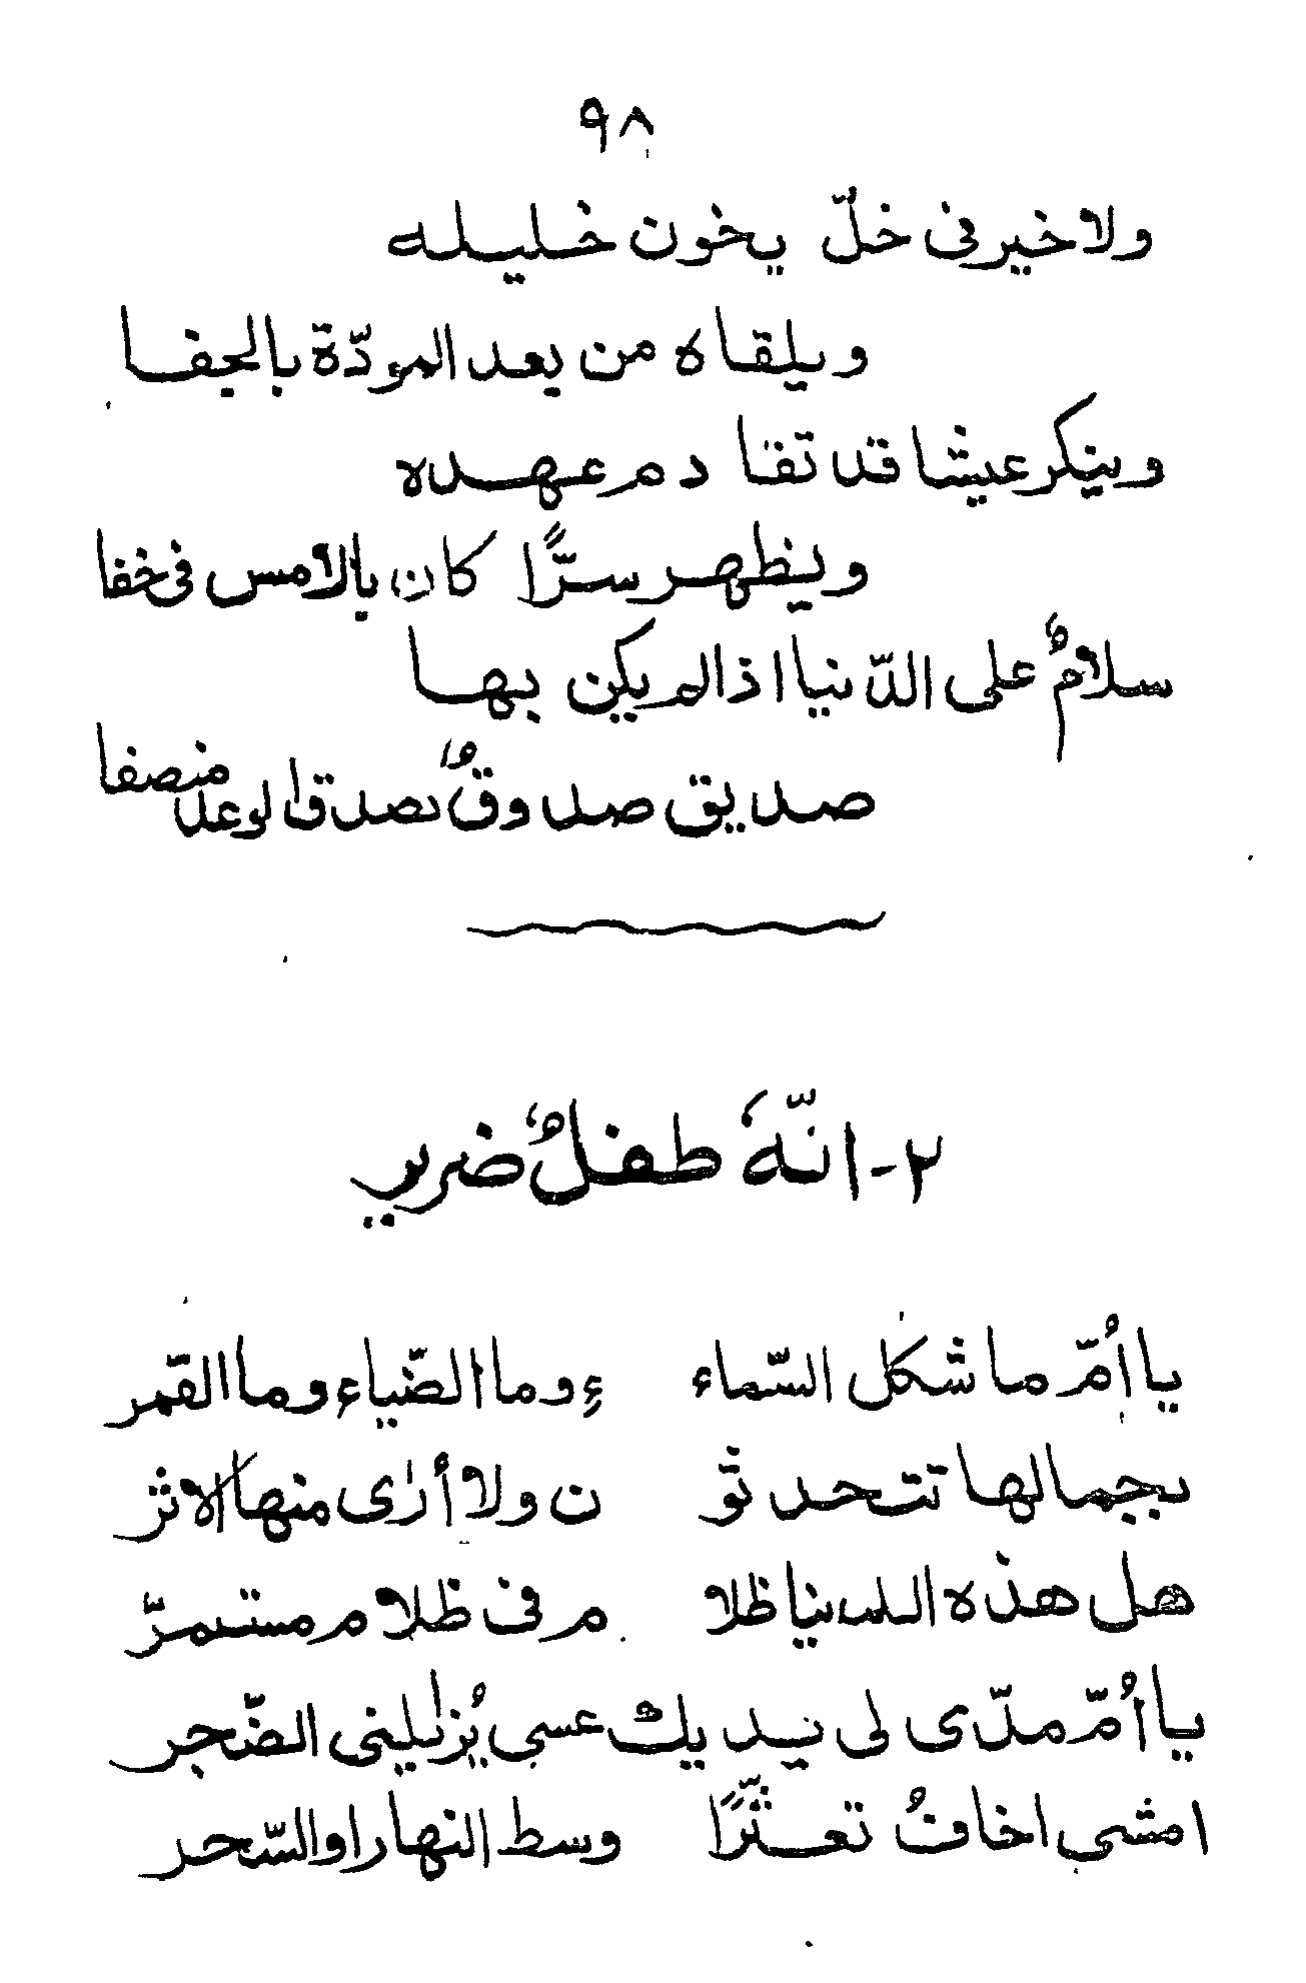 ٩٨
ولا خير فى خلّ يخون خليله
ويلقاه من بعد المودّة بالجفا
وينكر عيشا قد تقادم عهده
ويظهر سرًّا كان بالامس فى خفا
سلامٌ على الدّنيا اذا لم يكن بها
صديق صدوقٌ يصدق الوعد منصفا
٢- انّهُ طفلٌ ضرير
يا اُمّ ما شكل السّماء ءِ وما الضّياء وما القمر
بجمالها تتحدثو ن ولا أرى منها الاثر
هل هذه الدنيا ظلا م فى ظلام مستمرّ
يا اُمّ مدّى لى يديك عسى يُزايلنى الضّجر
امشى اخافُ تعثّرًا وسط النهار او السّحر